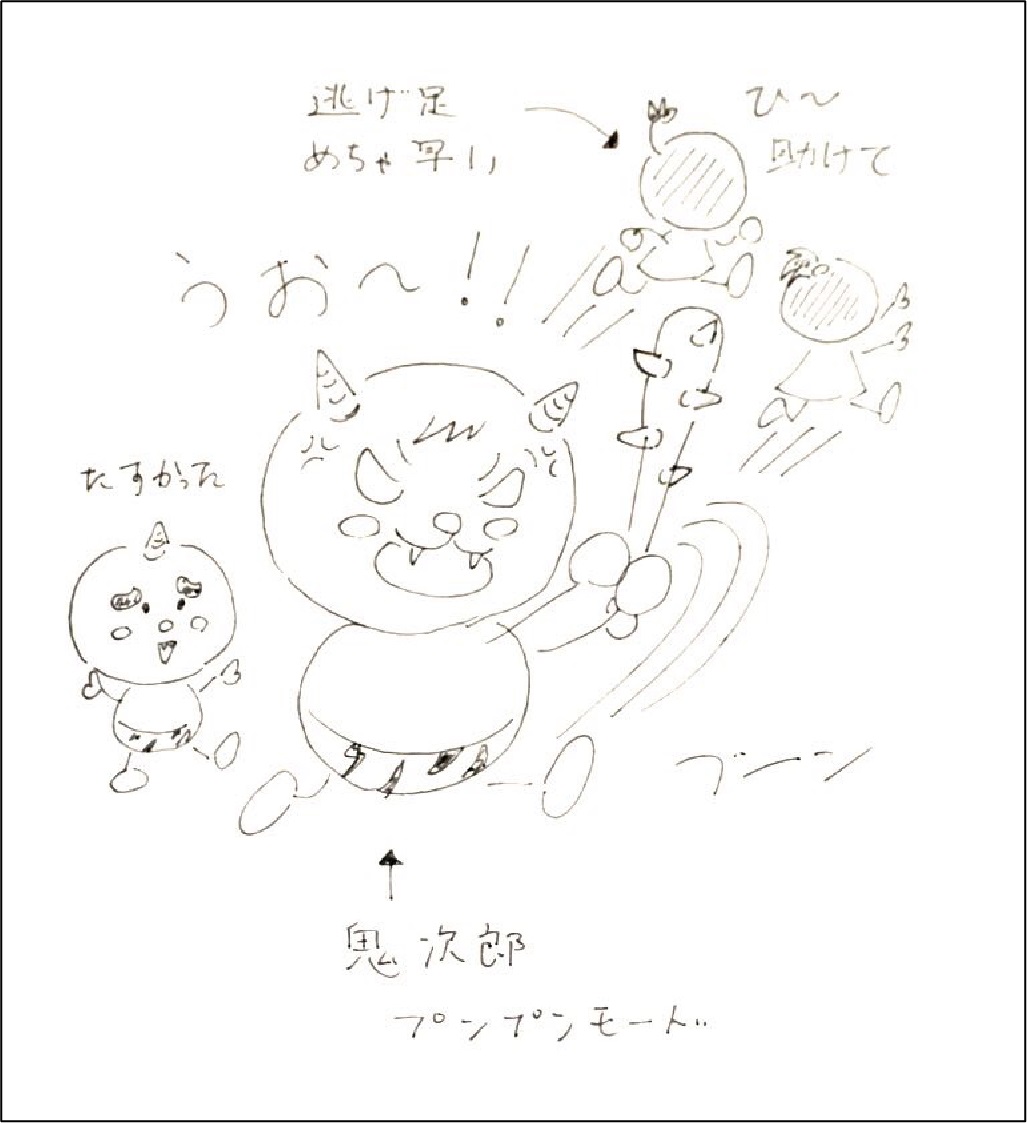 逃げ足
めちゃ早い
ひ〜
助けて
うお〜!!
たすかった
ブーン
鬼次郎
プンプンモード